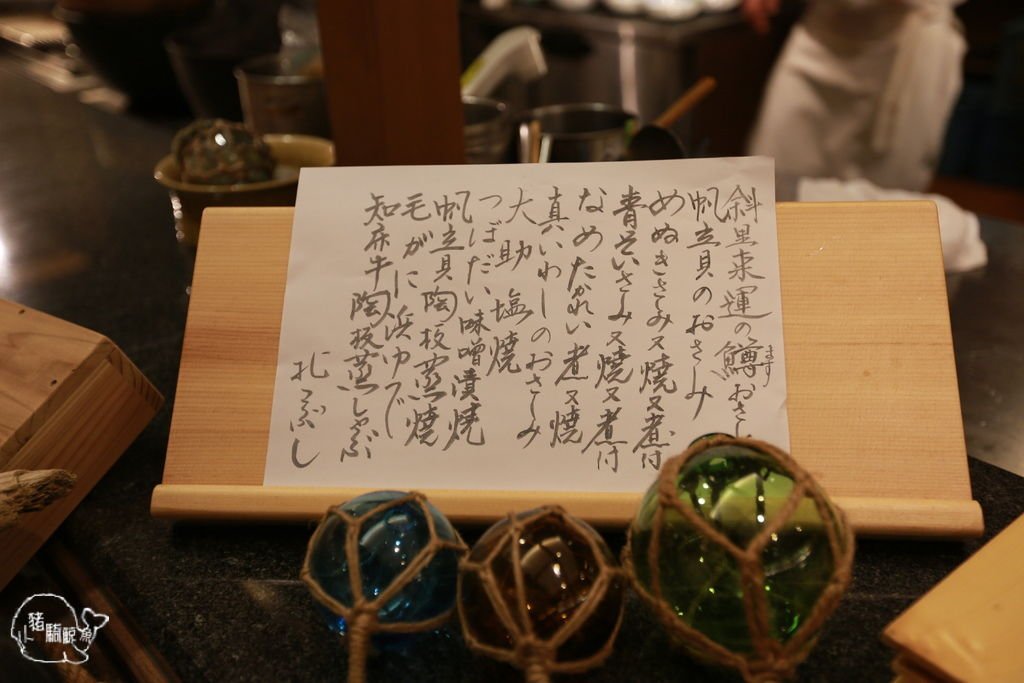 斜里来運の鱒おさし
ます
帆立貝のおさしみ
めぬきさしみ又焼又煮付
青そいさしみ又焼又煮付
なめたかれい煮又焼
真いわしのおさしみ
大助塩焼
つぼだい味噌漬焼
帆立貝陶板蒸焼
毛がに浜ゆでし
知床牛陶板蒸しゃぶ
札つぶし
豬騎鯨魚